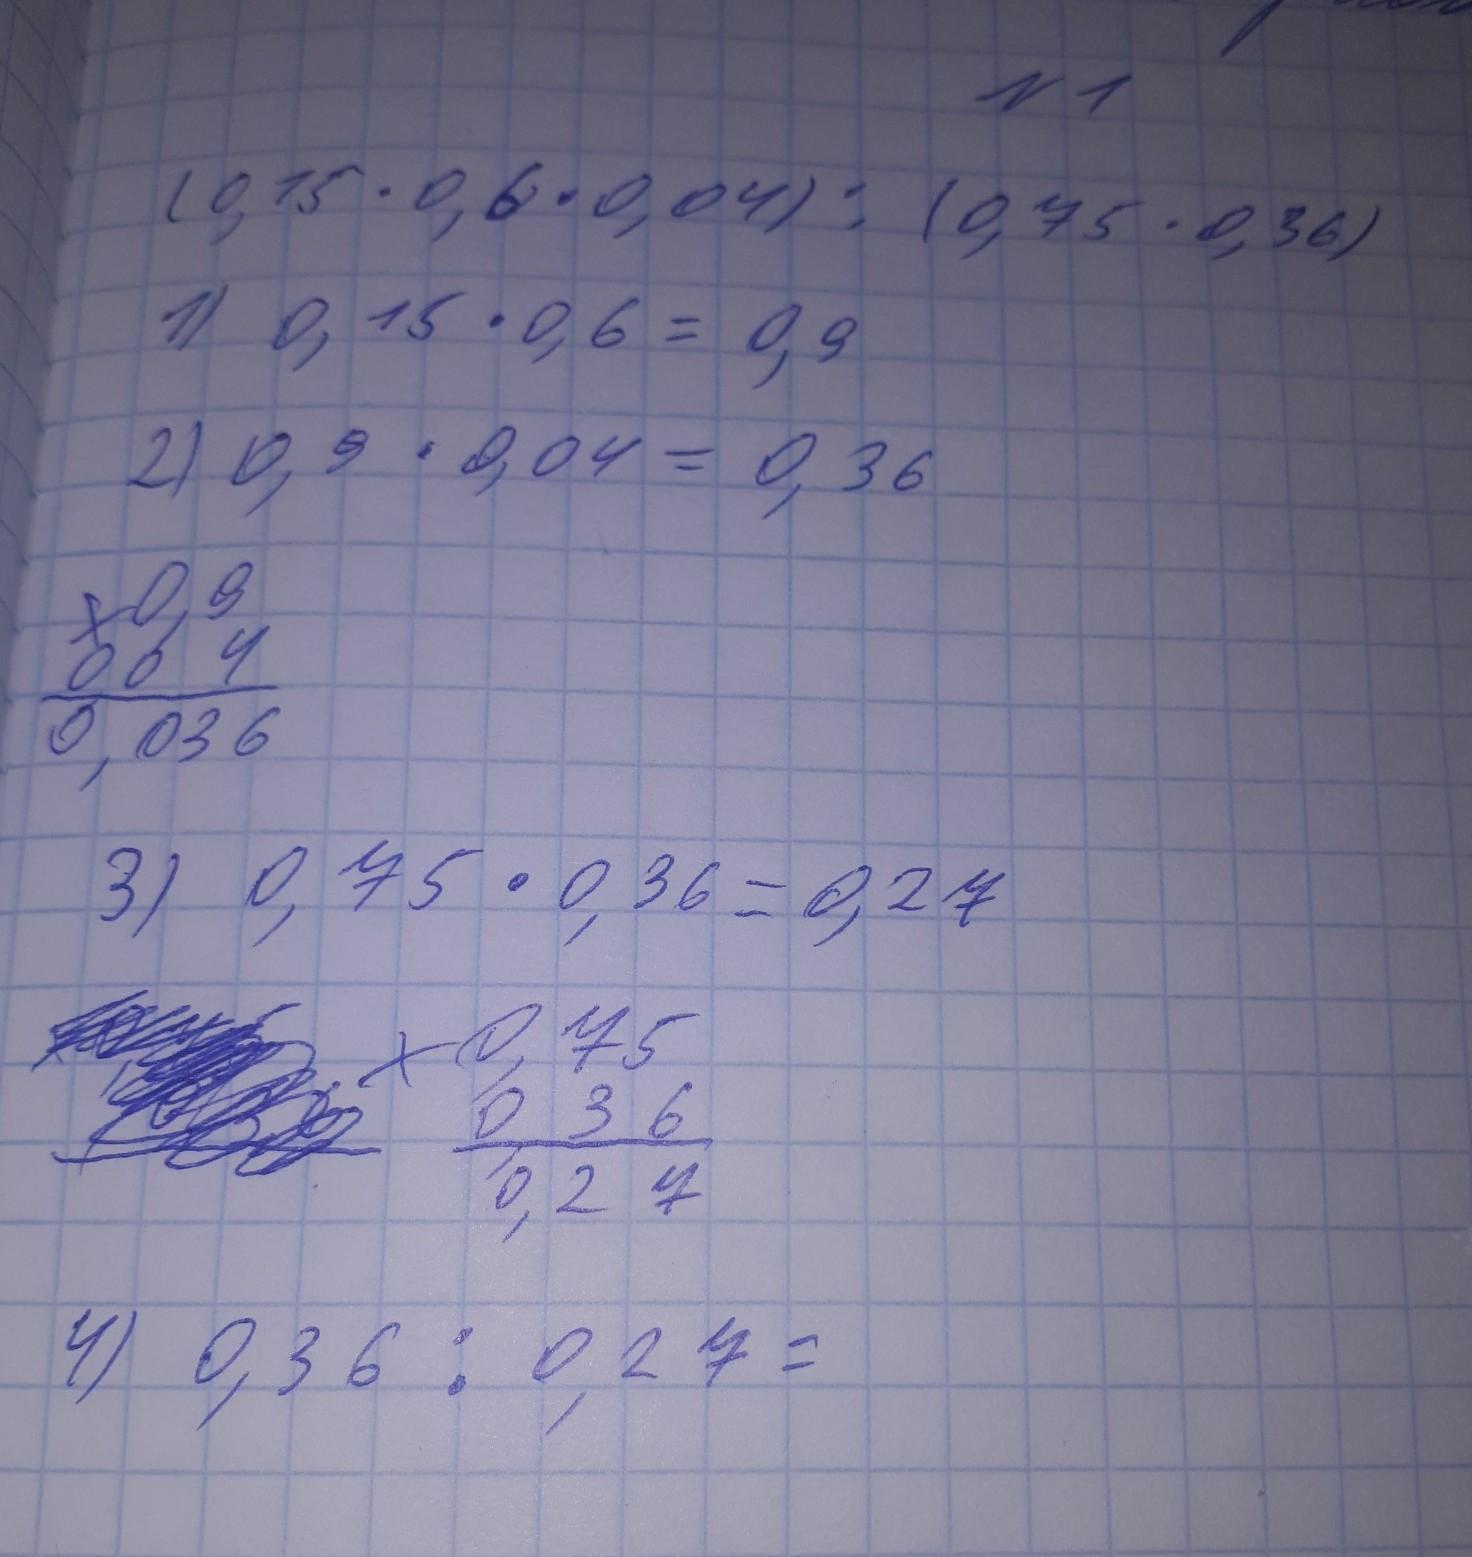 N 1
(0,15 · 0,6 · 0,04) : (0,75 · 0,36)
1) 0,15 · 0,6 = 0,9
2) 0,9 · 0,04 = 0,36
× 0,9
0 0 4
0,036
3) 0,75 · 0,36 = 0,27
× 0,75
0,36
0,27
4) 0,36 : 0,27 =